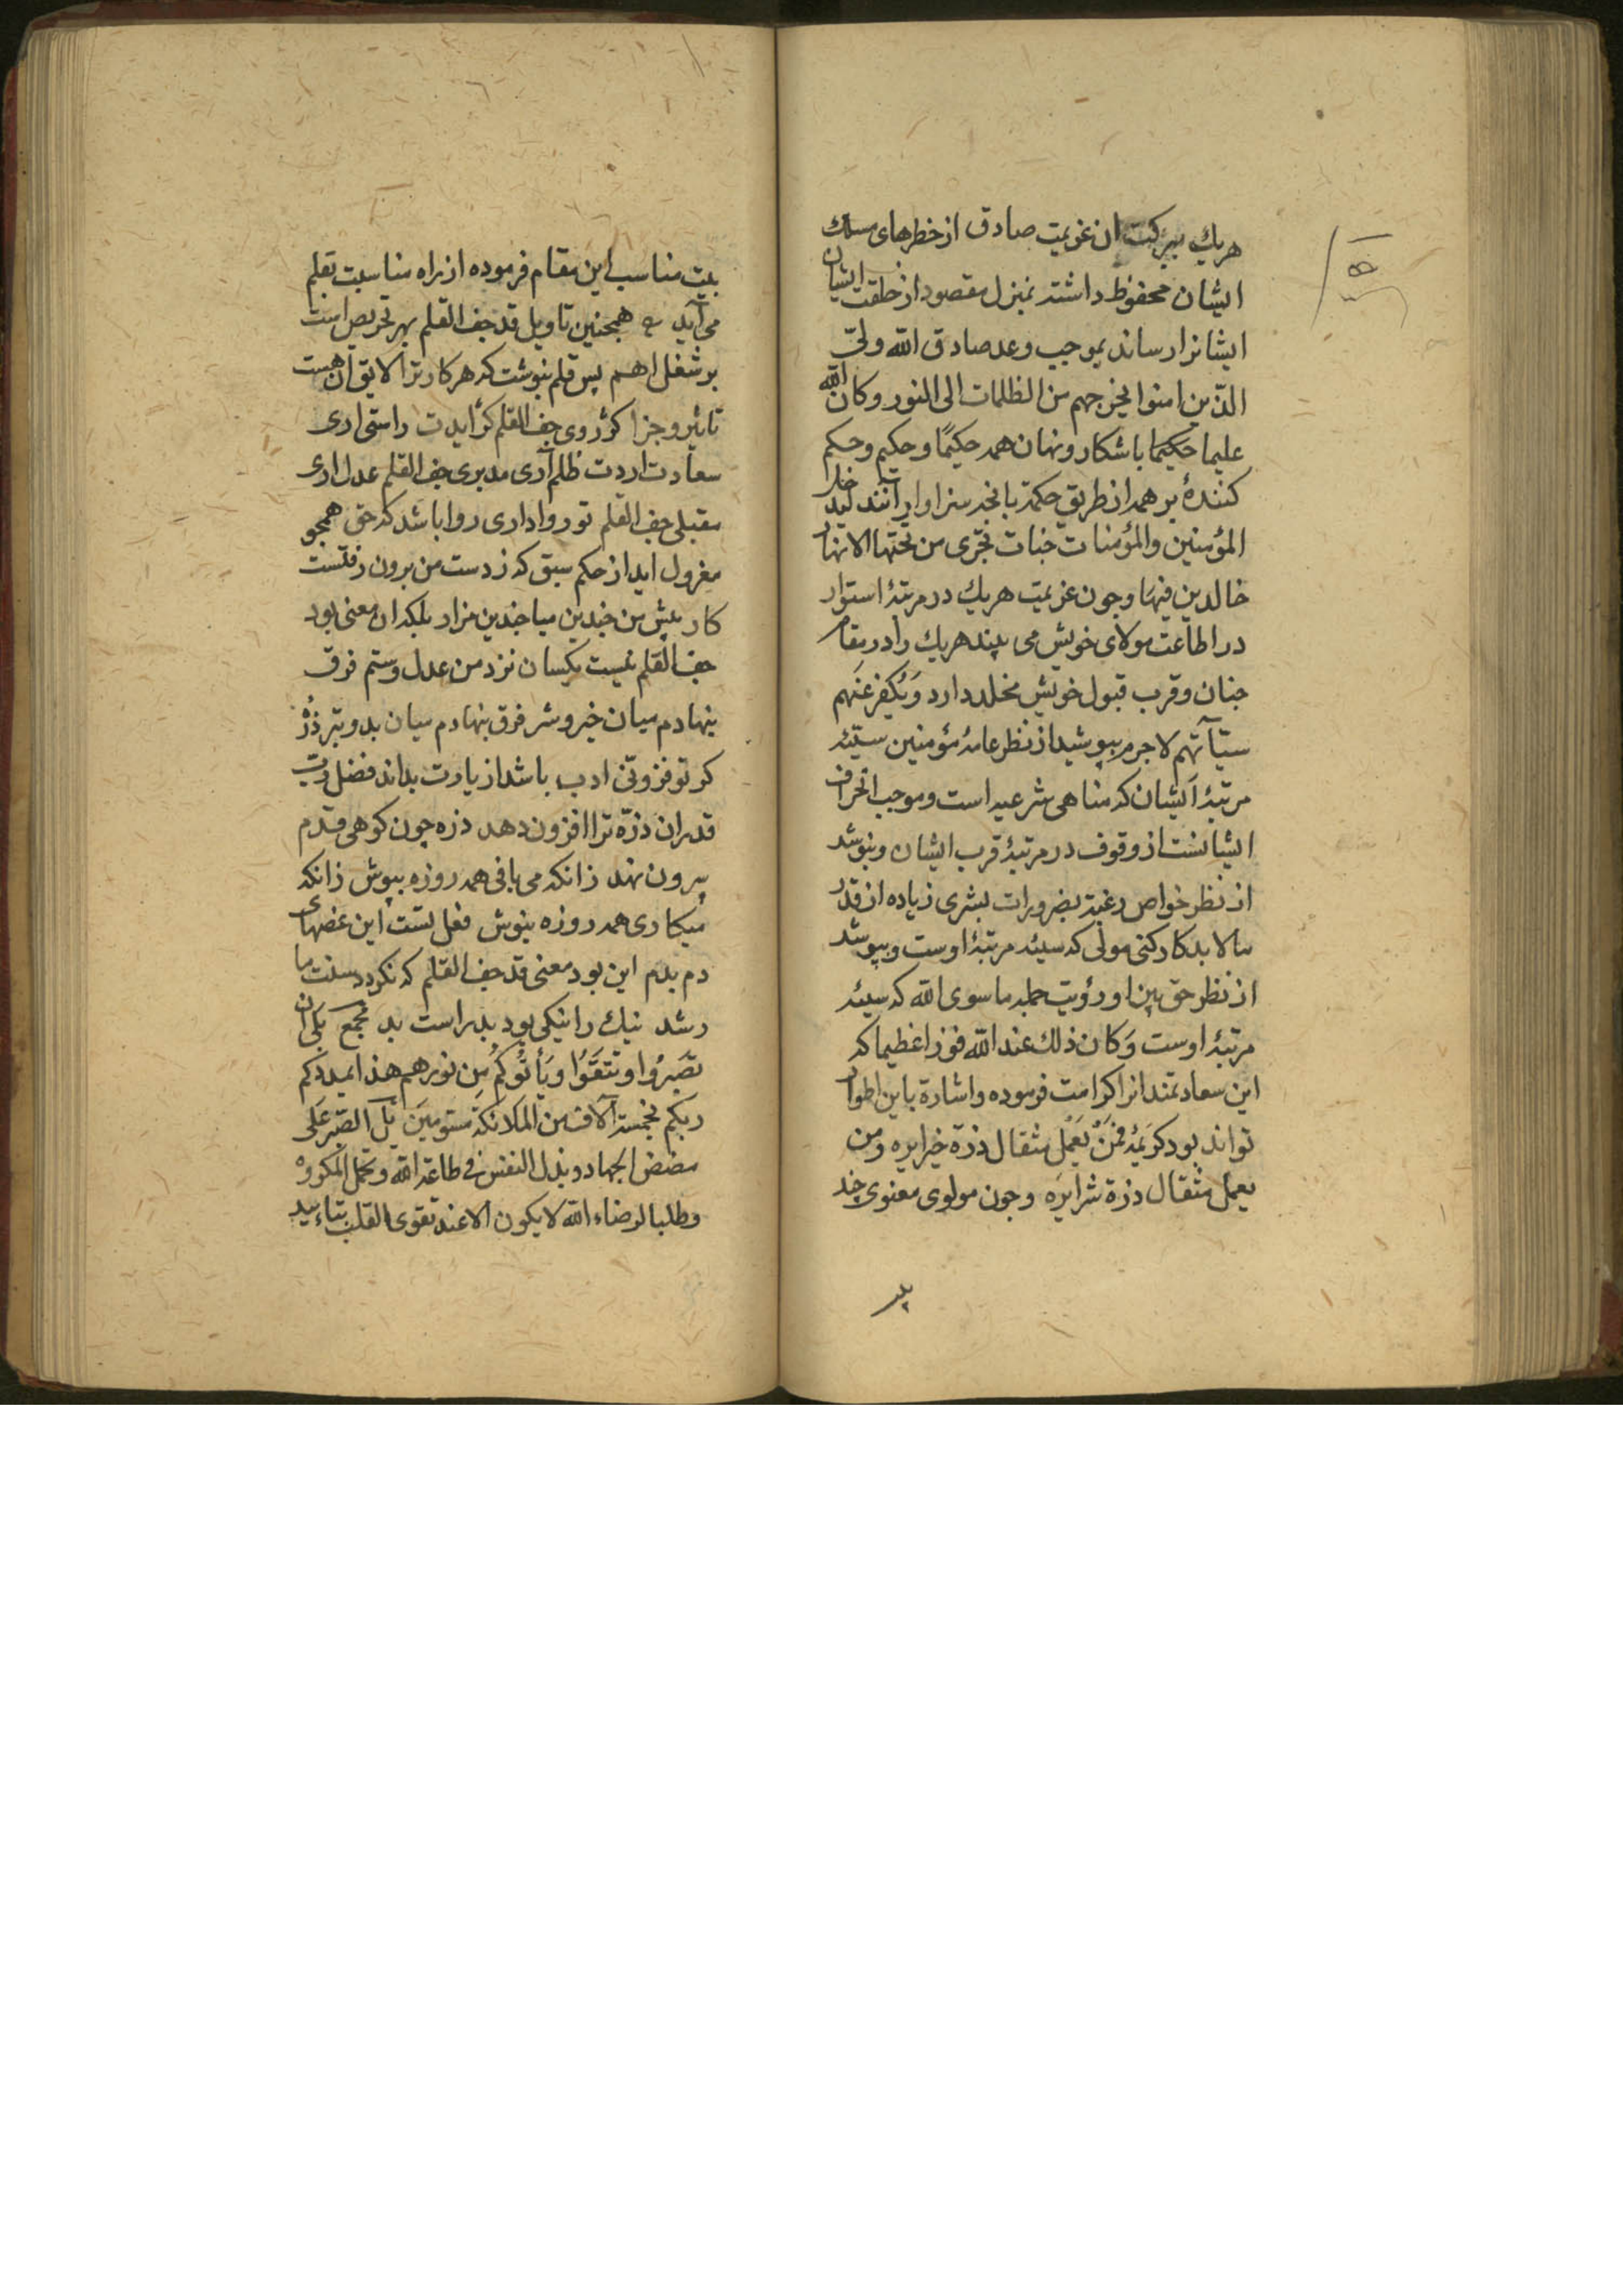 هریك ببرکت ان عزیمت صادق از خطرهای مسلك
ایشان محفوظ داشته بمنزل مقصود از خلقت ایشان
ایشانرا رساند بموجب وعد صادق الله ولیّ
الذین امنوا یخرجهم من الظلمات الی النور وکان الله
علیما حکیما باشکار ونهان همه حکیمًا وحکیم وحکم
کنندۀ بر همه از طریق حکمة بانچه سزاوار انند لیدخل
المؤمنین والمؤمنات جنات تجری من تحتها الانهار
خالدین فیها وچون عزیمت هریك در مرتبۀ استوار
در اطاعت مولای خویش می بیند هریك را در مقام
جنان وقرب قبول خویش مخلد دارد وَیُکفر عَنهم
سیّآتهم لاجرم بپوشید از نظر عامۀ مؤمنین سیّئه
مرتبۀ ایشان که مناهی شرعیه است وموجب انحراف
ایشانست از وقوف در مرتبۀ قرب ایشان وبپوشد
از نظر خواص رغبة بضرورات بشری زیاده از قدر
ما لابد کارکنی مولی که سیئه مرتبۀ اوست وبپوشد
از نظر حق بین او رؤیت جمله ماسوی الله که سیئه
مرتبۀ اوست وَکان ذلك عند الله فوزا عظیما که
این سعادتمند انرا کرامت فرموده واشارة باین اطوار
تواند بود کریمۀ فَمَنْ یَعمل مثقال ذرة خیرا یره ومن
یعمل مثقال ذرة شرا یَره وچون مولوی معنوی چند
بیت مناسب این مقام فرموده از راه مناسبت بقلم
می آید همچنین تاویل قد جف القلم بهر تحریص است
بر شغل اهم پس قلم بنوشت که هر کار ترا لایق آن هست
تاثیر وجزا کژ روی جف القلم کژ آیدت راستی اری
سعادت اردت ظلم آری مدبری جف القلم عدل اری
مقبلی جف القلم تو روا داری روا باشد که حق همچو
معزول اید از حکم سبق که ز دست من برون رفتست
کار پیش من چندین میا چندین مزار بلکه ان معنی بود
جف القلم نیست یکسان نزد من عدل وستم فرق
بنهادم میان خیر وشر فرق بنهادم میان بد وبتر ذرۀ
کر تو فزونی ادب باشد از یارت بداند فضل رب
قدر ان ذرّه ترا افزون دهد ذره چون کوهی قدم
بیرون نهد زانکه می بافی همه روزه بپوش زانکه
میکاری همه روزه بنوش فعل تست این غصهای
دم بدم این بود معنی قد جف القلم که نکردد سنت ما
رشد نیك را نیکی بود بد راست بد مجمع بَلی ان
تَصْبِرُوا وتَتَّقُوا وَیَأتُوکُم مِن فَورهم هذا یمددکم
ربکم بخمسة آلاف من الملائکة مسوّمینَ بل الصّبر عَلی
مضض الجهاد وبذل النفس فی طاعة الله وتحمل المکروه
وطلبا لرضاء الله لا یکون الا عند تقوی القلب بتاءیید